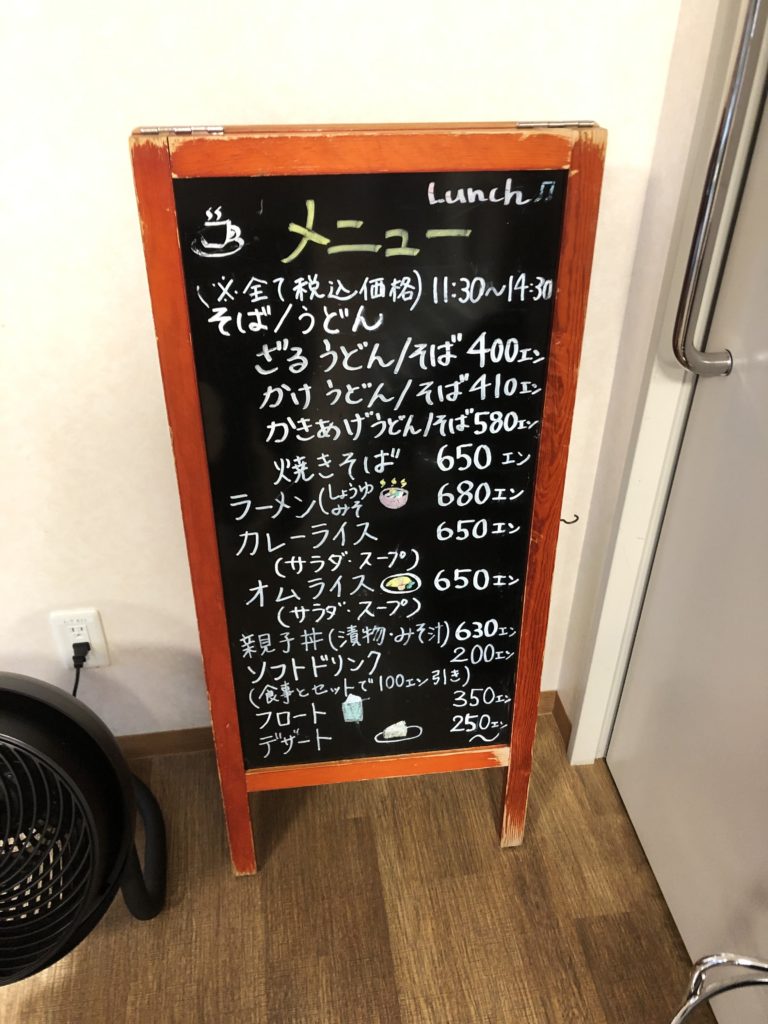 Lunch♫
メニュー
(※全て税込価格) 11:30〜14:30
そば/うどん
ざるうどん/そば 400エン
かけうどん/そば 410エン
かきあげうどん/そば 580エン
焼きそば 650エン
ラーメン(しょうゆ 680エン
みそ
カレーライス 650エン
(サラダ・スープ)
オムライス 650エン
(サラダ・スープ)
親子丼(漬物・みそ汁) 630エン
ソフトドリンク 200エン
(食事とセットで100エン引き)
フロート 350エン
デザート 250エン〜